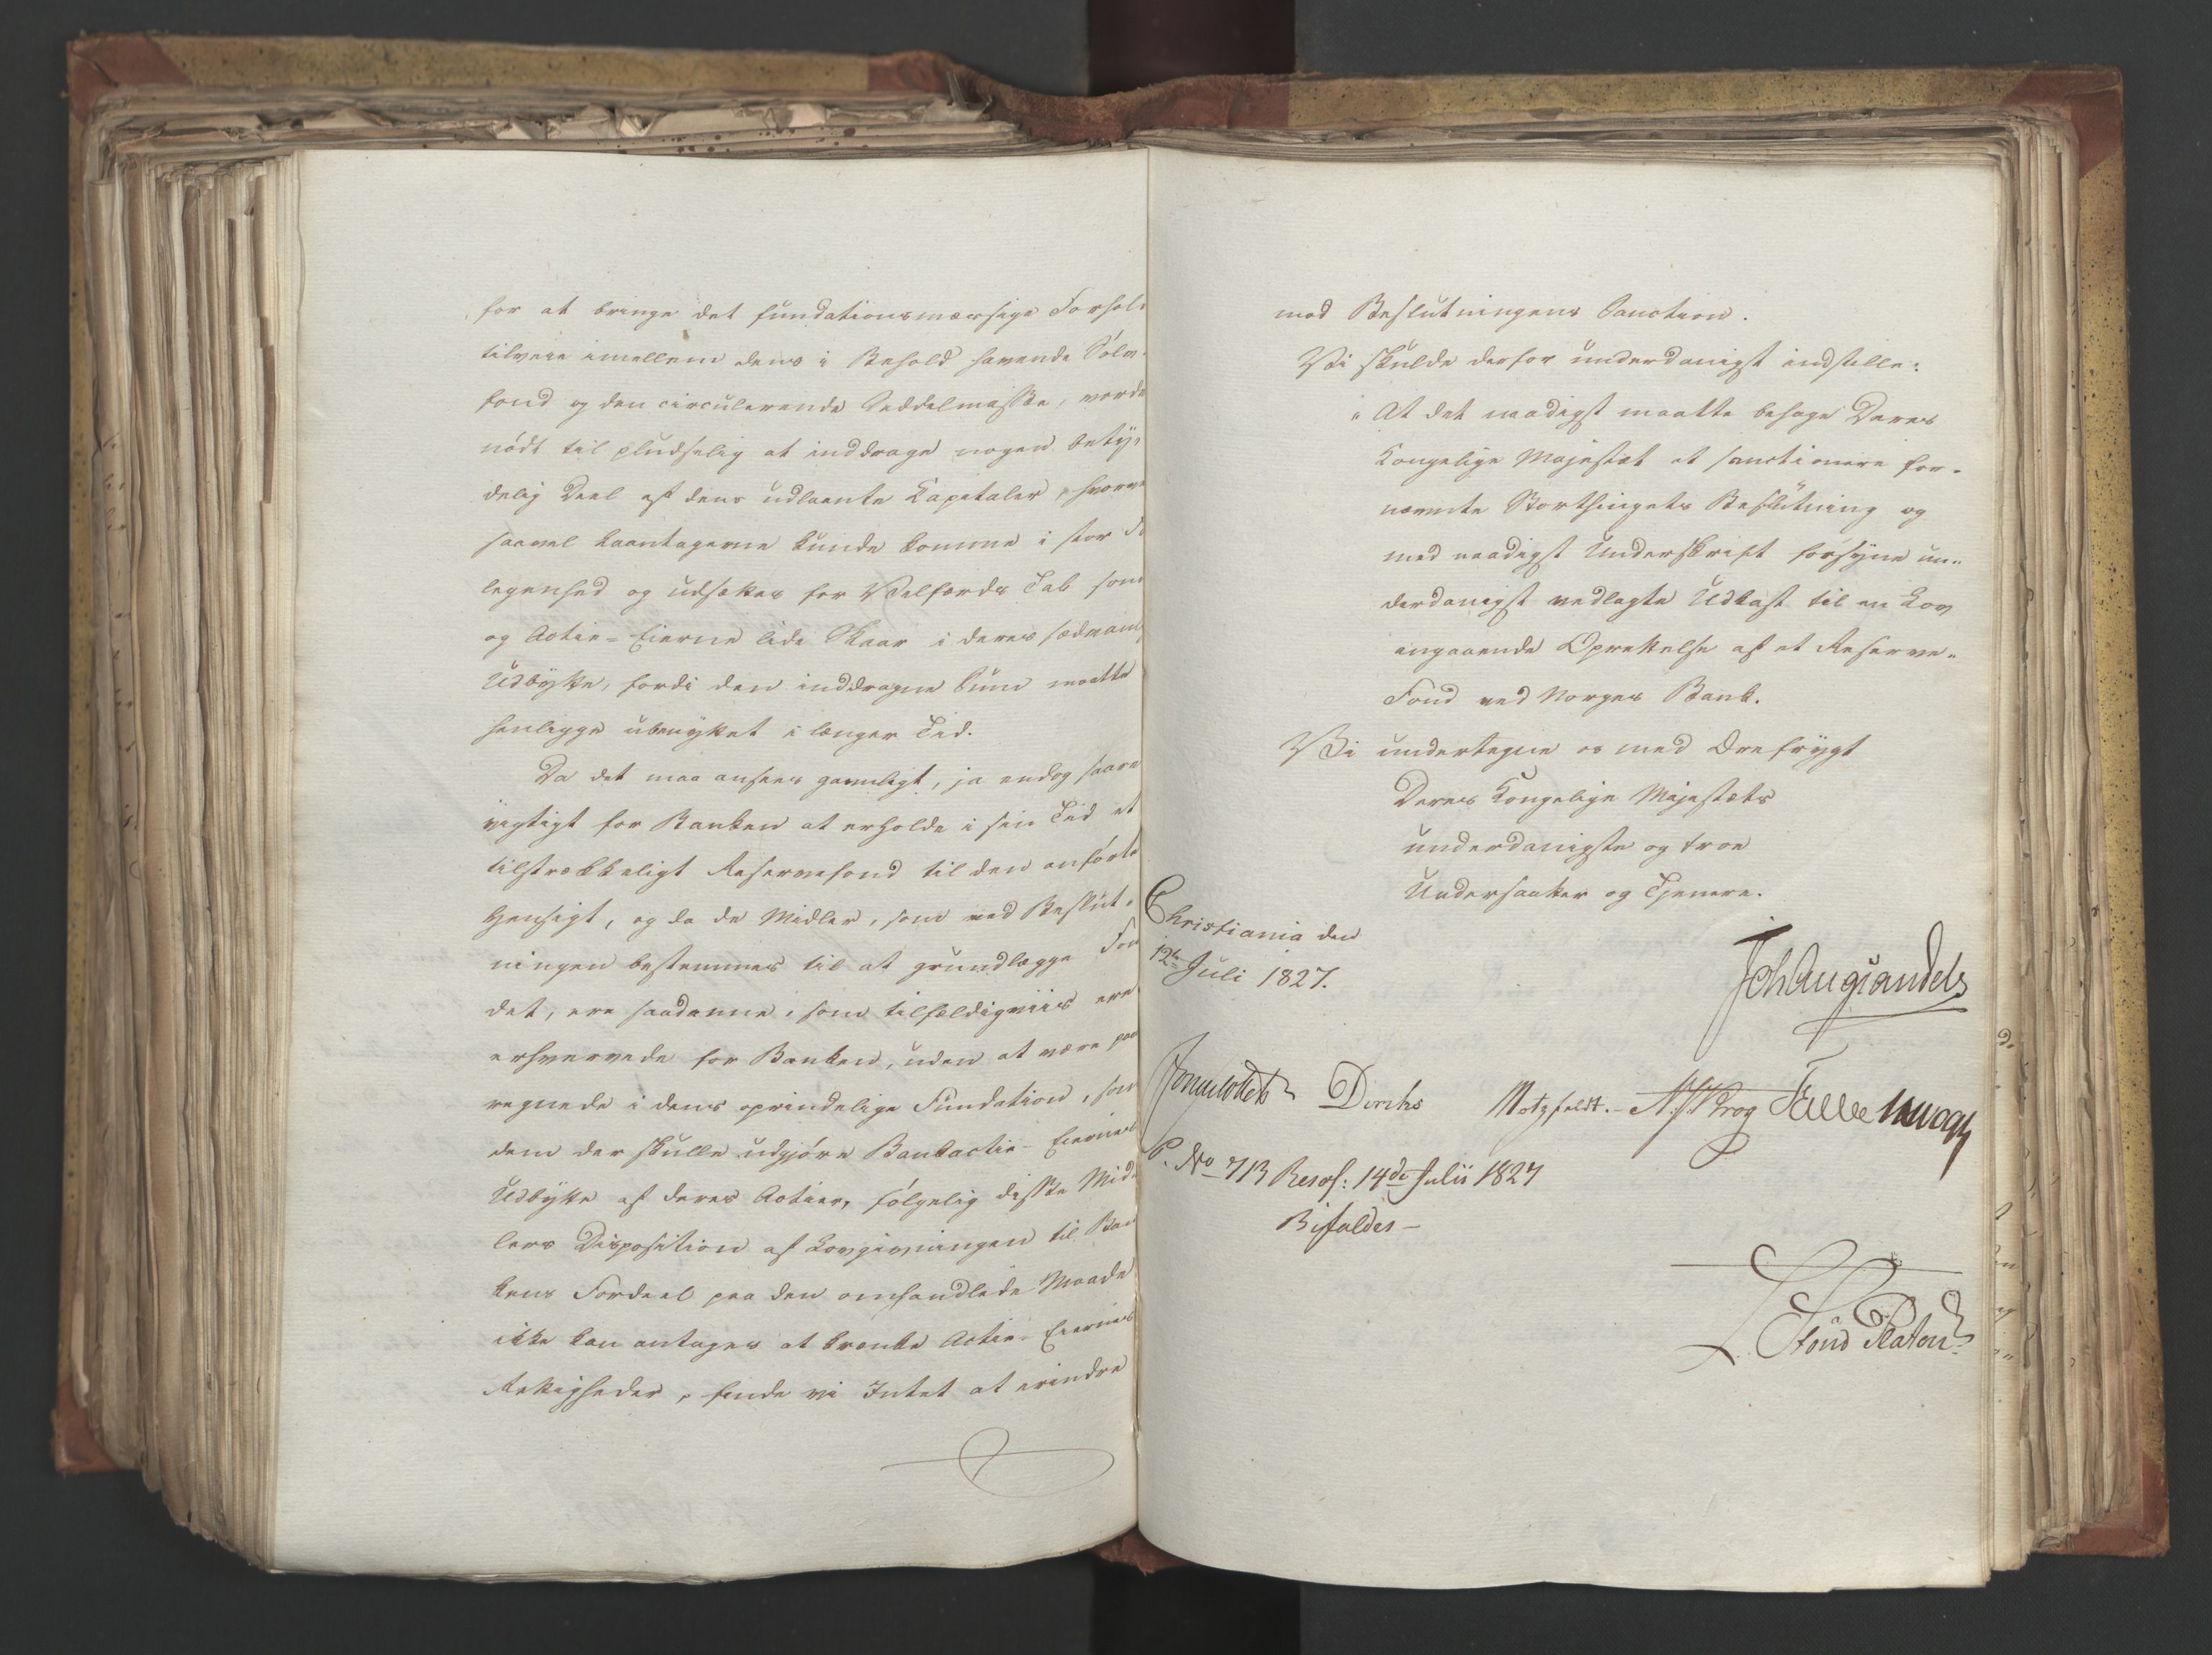 for at bringe det fundationsmæssige Forhold
tilveie imellem dens i Behold havende Sølv-
fond og den circulerende Seddelmasse, vorde
nødt til pludselig at inddrage nogen bety-
delig Deel af dens udlaante Kapitaler, hvorved
saavel Laantagerne kunde komme i stor
legenhed og udsættes for Velfærds Tab som
og Actie-Eierne lide Skaar i deres sædvanl
Udbytte, fordi den inddragne Sum maatte
henligge ubenyttet i længer Tid.
Da det maa ansees gavnligt, ja endog saare
vigtigt for Banken at erholde i sin Tid et
tilstrækkeligt Reservefond til den anførte
Hensigt, og da de Midler, som ved Beslut-
ningen bestemmes til at grundlægge Fon
det, ere saadanne, som tilfældigviis ere
erhvervede for Banken, uden at være paa
regnede i dens oprindelige Fundation, som
dem der skulle udgjøre Bankactie-Eiernes
Udbytte af deres Actier, følgelig disse Mid-
lers Disposition af Lovgivningen til Ban
kens Fordeel paa den omhandlede Maade
ikke kan antages at krænke Actie-Eiernes
Rettigheder, finde vi Intet at erindre
mod Beslutningens Sanction.
Vi skulde derfor underdanigst indstille:
"At det naadigst maatte behage Deres
Kongelige Majestæt at sanctionere for-
nævnte Storthingets Beslutning og
med naadigst Underskrift forsyne un-
derdanigst vedlagte Udkast til en Lov
angaaende Oprettelse af et Reserve-
Fond ved Norges Bank.
Vi undertegne os med Ærefrygt
Deres Kongelige Majestæts
underdanigste og troe
Undersaatter og Tjenere.
Christiania den
12te Juli 1827.
Joh Aug Sandels
Sommerhielm Diriks Motzfeldt. Krog Fasting
P. No 713 Resol: 14de Julii 1827
Bifaldes –
Platen